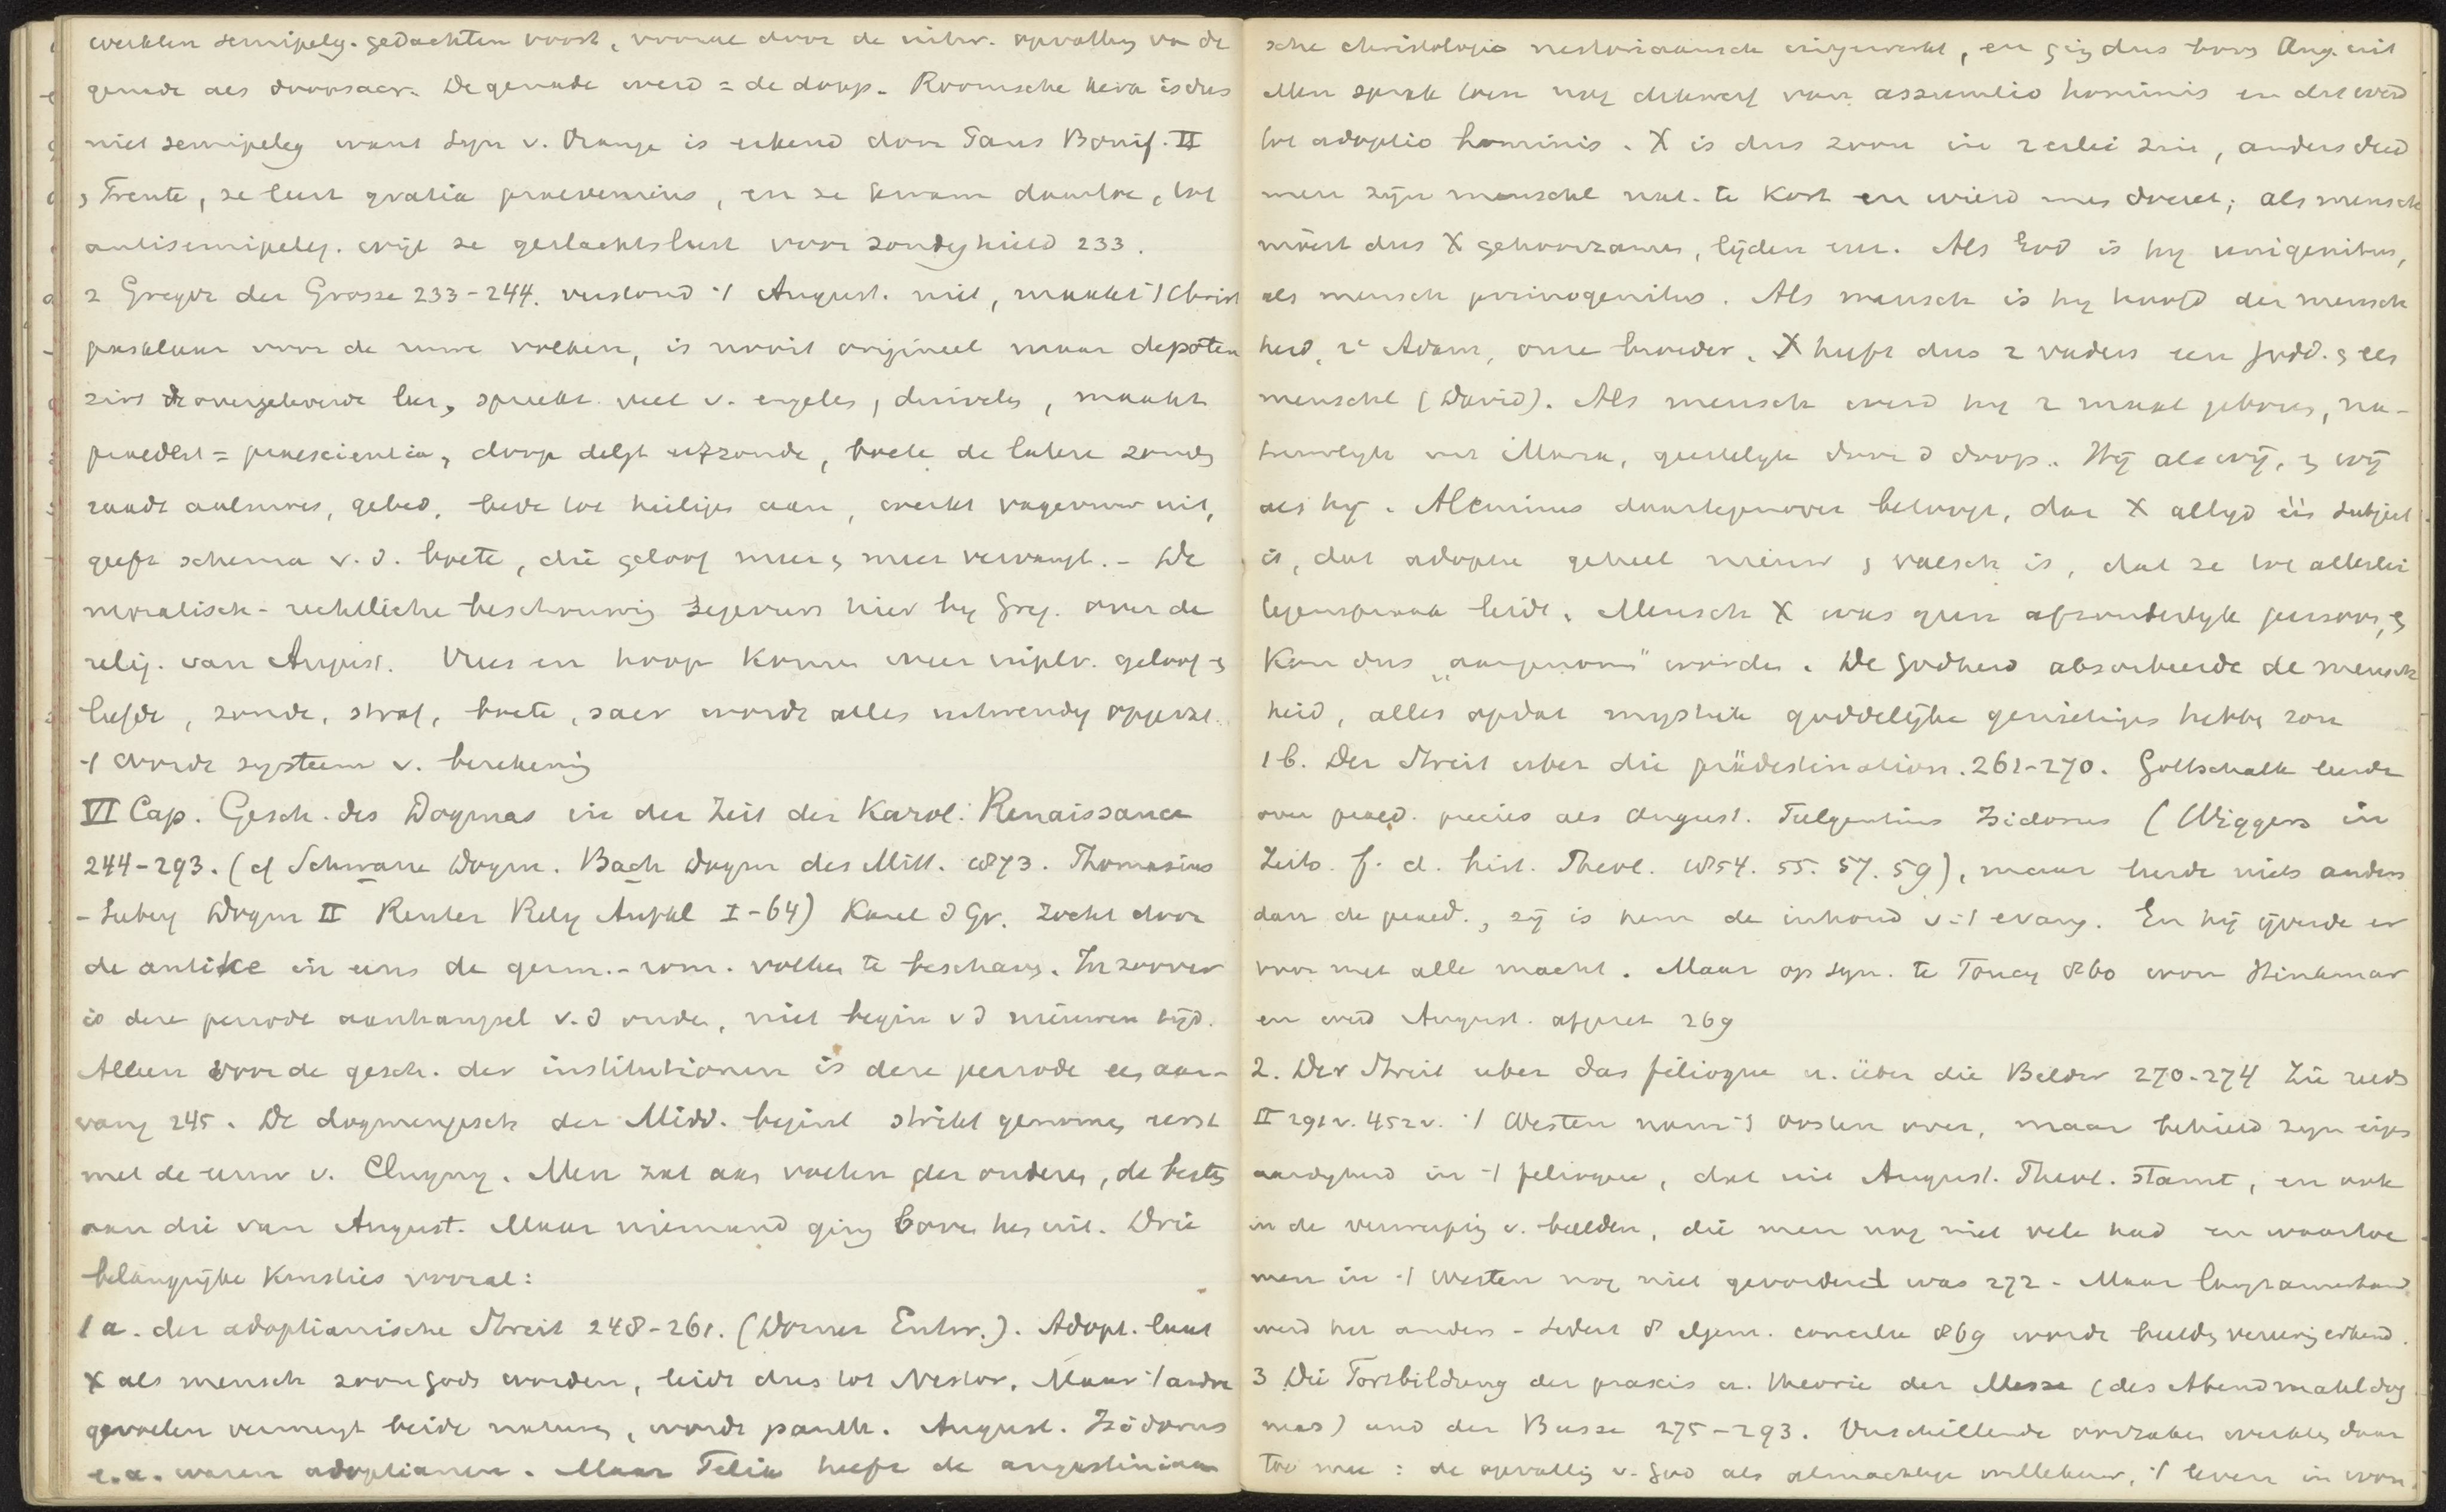 werkten semipelag. gedachten voort, vooral door de uitw. opvatting van de
genade als doopsacr. De genade werd = de doop. Roomsche kerk is dus
niet semipelag want Syn v. Orange is erkend door Paus Bonif. II
, Trente, ze leert gratia praeveniens, en ze kwam daartoe, tot
antisemipelag. wijl ze geslachtslust voor zondig hield 233.
2 Gregor der Grosse 233-244. verstond 't August. niet, maakt 't Christ
pasklaar voor de ruwe volken, is nooit origineel maar depoten
zirt de overgeleverde leer, spreekt veel v. engelen, duivelen, maakt
praedest = praescientia, doop delgt erfzonde, boete de latere zonden
raadt aalmoes, gebed, bede tot heiligen aan, werkt vagevuur uit,
geeft schema v. d. boete, die geloof meer en meer vervangt. - De
moralisch-rechtliche beschouwing zegeviert hier by Greg. over de
relig. van August. Vrees en hoop komen weer in plts. geloof en
liefde, zonde, straf, boete, sacr wordt alles uitwendig opgevat.
't wordt systeem v. berekening
VI Cap. Gesch. des Dogmas in der Zeit der Karol. Renaissance
244-293. (cf Schwane Dogm. Bach Dogm des Mitt. 1873. Thomasius
-Seeberg Dogm II Reuter Relig Aufkl I-64) Karel d Gr. zocht door
de antike in eens de germ.-rom. volken te beschaven. In zoover
is deze periode aanhangsel v. d oude, niet begin v d nieuwen tijd.
Alleen voor de gesch. der institutionen is deze periode een aan-
vang 245. De dogmengesch der Midd. begint strikt genomen eerst
met de eeuw v. Clugny. Men zat aan voeten der ouderen, de besten
aan die van August. Maar niemand ging boven hen uit. Drie
belangrijke kwesties vooral:
1a. der adoptianische Streit 248-261. (Dorner Entw.). Adopt. laat
X als mensch zoon Gods worden, leidt dus tot Nestor. Maar 't ander
gevoelen vermengt beide naturen, wordt panth. August. Isidorus
e.a. waren adoptianen. Maar Felix heeft de augustiniaan
sche christologie nestoriaansch uitgewerkt, en ging dus boven Aug. uit
Men sprak toen nog dikwerf van assumtio hominis en dit werd
tot adoptio hominis. X is dus zoon in 2 erlei zin, anders deed
men zijn menschel nat. te kort en wierd men doceet; als mensch
moest dus X gehoorzamen, lijden enz. Als God is hy unigenitus,
als mensch primogenitus. Als mensch is hy hoofd der mensch
heid, 2e Adam, onze broeder. X heeft dus 2 vaders een godd. en een
menschel (David). Als mensch werd hy 2 maal geboren, na-
tuurlyk uit Maria, geestelyk door d doop. Hij als wij, en wij
als hij. Alcuinus daartegenover betoogt, dat X altyd één subject
is, dat adoptie geheel nieuw en valsch is, dat ze tot allerlei
tegenspraak leidt. Mensch X was geen afzonderlyk persoon, en
kon dus „aangenomen" worden. De godheid absorbeerde de mensch
heid, alles opdat mystiek goddelijke genietingen hebbe zou
1b. Der Streit uber die prädestination. 261-270. Gottschalk leerde
over praed. precies als August. Fulgentius Isidorus (Wiggers in
Zeits. f. d. hist. Theol. 1854. 55. 57. 59), maar leerde niets anders
dan de praed., zij is hem de inhoud v. 't evang. En hij ijverde er
voor met alle macht. Maar op syn. te Toucy 860 won Hinkmar
en werd August. afgezet 269
2. Der Streit uber das filioque u. über die Bilder 270-274 Zie reeds
II 291v. 452v. 't Westen nam 't oosten over, maar behield zyn eigen
aardigheid in 't filioque, dat uit August. Theol. stamt, en ook
in de verwerping v. beelden, die men nog niet vele had en waartoe
men in 't Westen nog niet gevorderd was 272 - Maar langzamerhand
werd het anders - sedert 8 algem. concilie 869 wordt beeldenvereering erkend.
3 Die Fortbildung der praxis u. theorie der Messe (des Abendmahldog
mas) und der Busse 275-293. Verschillende oorzaken werkten daar
toe mee: de opvatting v. God als almachtige willekeur, 't leven in won